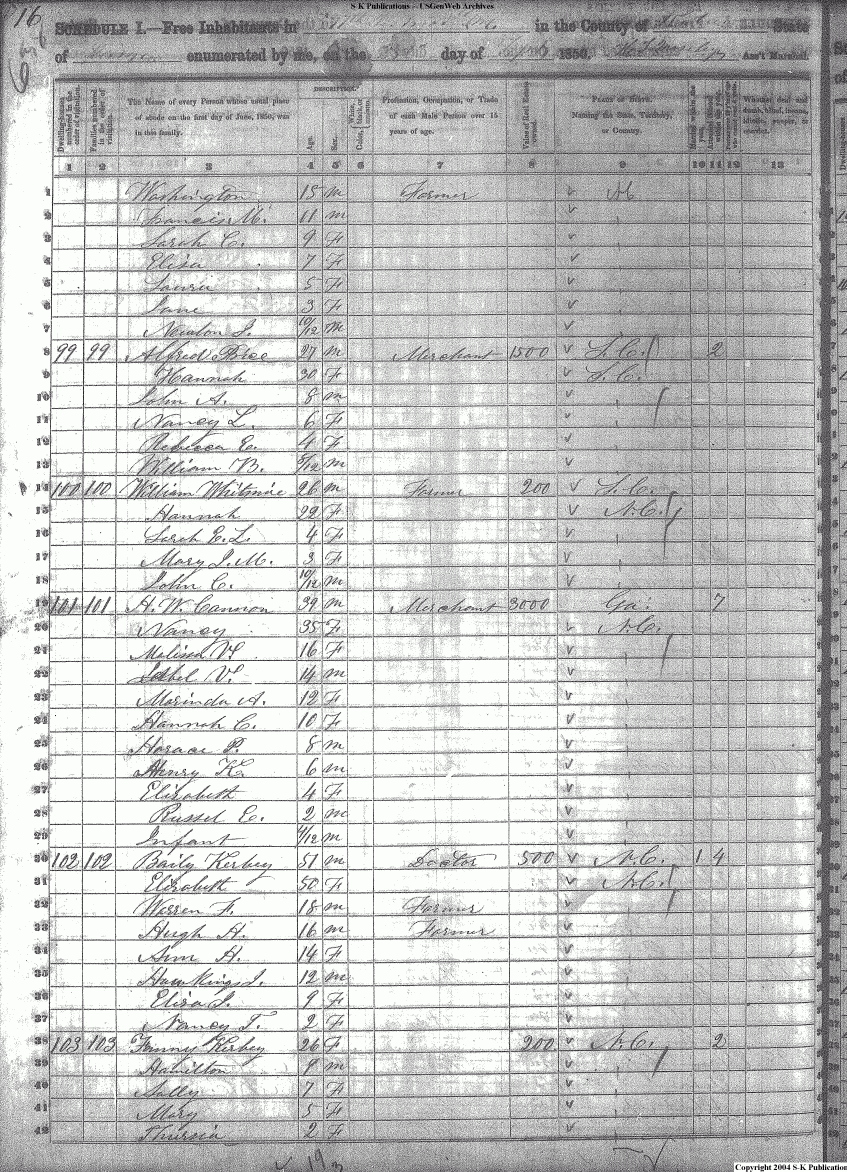 S-K Publications - USGenWeb Archives
16
SCHEDULE I.—Free Inhabitants in in the County of State
of enumerated by me, on the day of 1850. Ass't Marshal.
Dwelling-houses numbered in the order of visitation.
Families numbered in the order of visitation.
The Name of every Person whose usual place of abode on the first day of June, 1850, was in this family.
DESCRIPTION.
Age.
Sex.
White, black, or mulatto.
Profession, Occupation, or Trade of each Male Person over 15 years of age.
Value of Real Estate owned.
PLACE OF BIRTH.
Naming the State, Territory, or Country.
Whether deaf and dumb, blind, insane, idiotic, pauper, or convict.
1 2 3 4 5 6 7 8 9 10 11 12 13
1 Washington 15 m Farmer v
2 Francis M. 11 m v
3 Sarah C. 9 F v
4 Eliza 7 F v
5 Laura 5 F v
6 Jane 3 F v
7 Newton J. 10/12 m v
8 99 99 Alfred 27 m Merchant 1500 v S.C. 2
9 Hannah 30 F v S.C.
10 John A. 8 m v
11 Nancy L. 6 F v
12 Rebecca E. 4 F v
13 William B. 5/12 m v
14 100 100 William Whitmire 26 m Farmer 200 v S.C.
15 Hannah 22 F v N.C.
16 Sarah E.L. 4 F v
17 Mary J.M. 3 F v
18 John C. 10/12 m v
19 101 101 H. W. Cannon 39 m Merchant 3000 Ga. 7
20 Nancy 35 F v N.C.
21 Melissa V. 16 F v
22 V. 14 m v
23 Marinda A. 12 F v
24 Hannah C. 10 F v
25 Horace P. 8 m v
26 Henry K. 6 m v
27 Elizabeth 4 F v
28 Russel E. 2 m v
29 Infant 4/12 m v
30 102 102 Baily Kerbey 51 m Doctor 500 v N.C. 1 4
31 Elizabeth 50 F v N.C.
32 Warren F. 18 m Farmer v
33 Hugh H. 16 m Farmer v
34 Ann H. 14 F v
35 Hawkings J. 12 m v
36 Eliza J. 9 F v
37 Nancy T. 2 F v
38 103 103 Fanny Kerbey 26 F 200 v N.C. 2
39 Hamilton 9 m v
40 Sally 7 F v
41 Mary 5 F v
42 Thursia 2 F v
Copyright 2004 S-K Publication